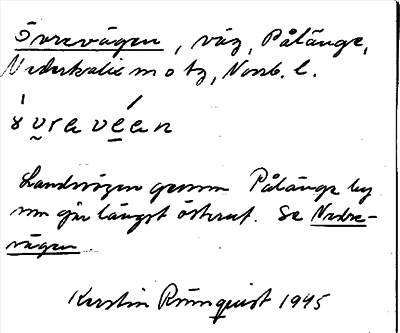 Övrevägen, väg, Pålänge,
Nederkalix sn o tg, Norrb. l.
Landsvägen genom Pålänge by
som går längst österut. Se Nedre-
vägen
Kerstin Rönnquist 1945